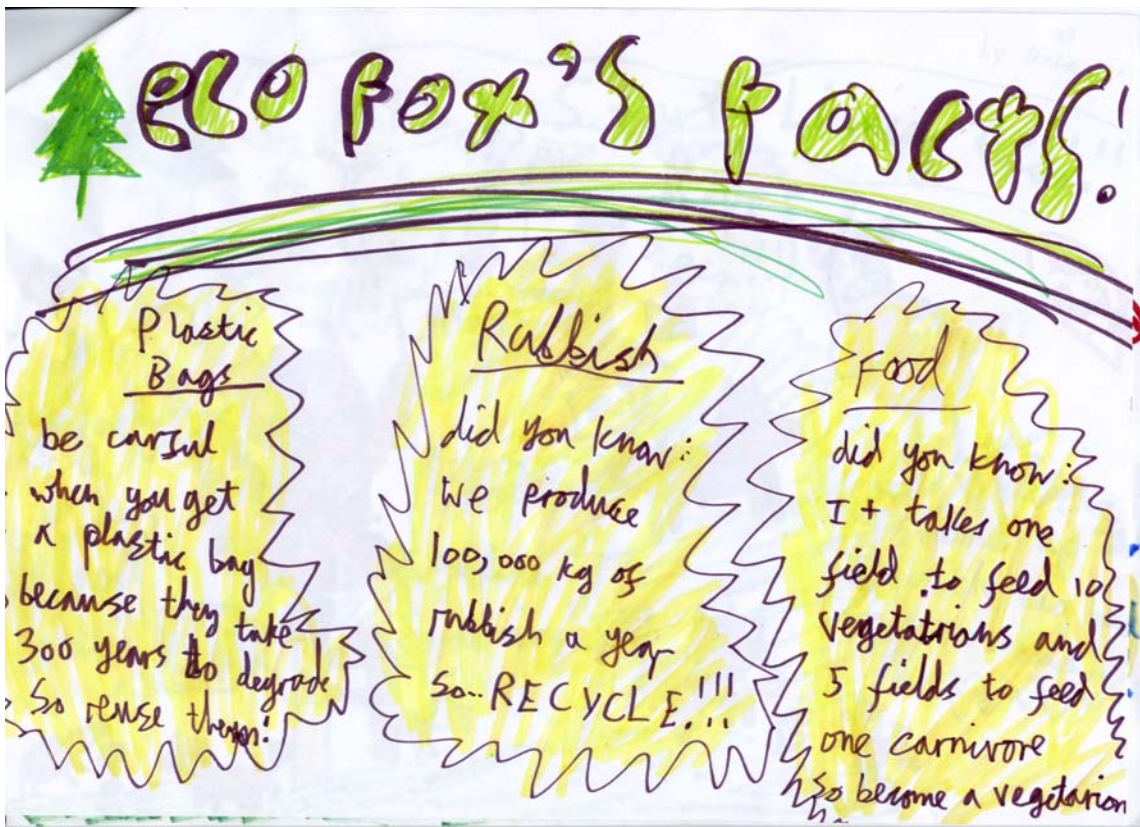 eco fox's facts!
Plastic
Bags
be carful
when you get
a plastic bag
because they take
300 years to degrade
So reuse them!
Rubbish
did you know:
we produce
100,000 kg of
rubbish a year
so... RECYCLE!!!
Food
did you know:
It takes one
field to feed 10
vegetatrians and
5 fields to feed
one carnivore
So become a vegetarion